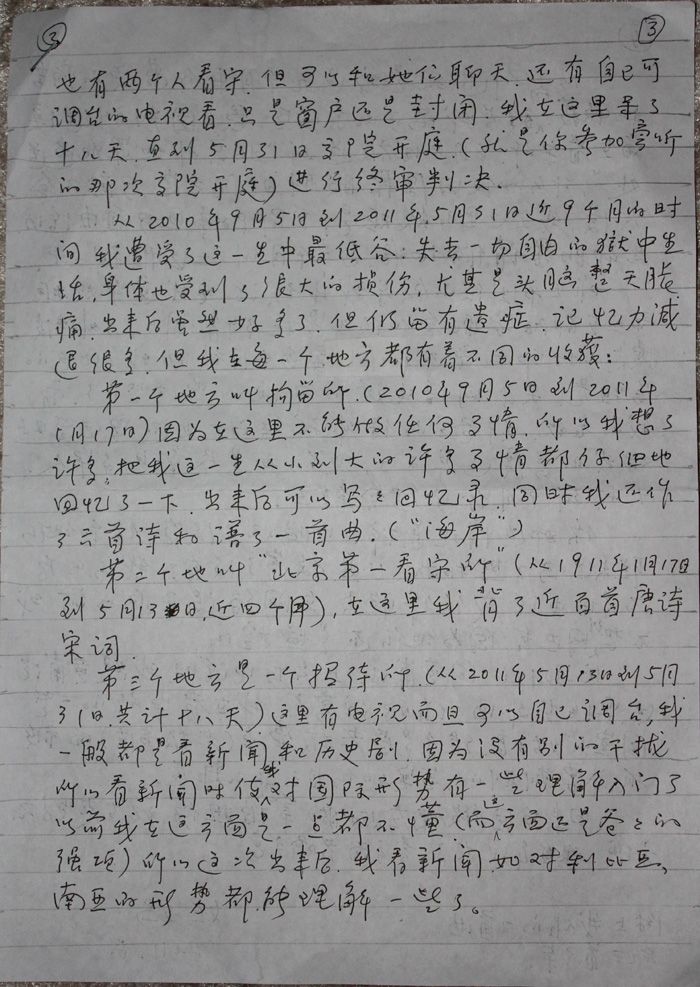 ③ ③
也有两个人看守.但可以和她们聊天.还有自己可
调台的电视看.只是窗户还是封闭.我在这里呆了
十八天.直到5月31日法院开庭.(就是你参加旁听
的那次法院开庭)进行终审判决.
从2010年9月5日到2011年.5月31日近9个月的时
间我遭受了这一生中最低谷:失去一切自由的狱中生
活,身体也受到了很大的损伤,尤其是头脑整天胀
痛.出来后虽然好多了.但仍留有遗症.记忆力减
退很多.但我在每一个地方都有着不同的收获:
第一个地方叫拘留所.(2010年9月5日到2011年
1月17日)因为在这里不能做任何事情.所以我想了
许多,把我这一生从小到大的许多事情都仔细地
回忆了一下.出来后可以写写回忆录.同时我还作
了六首诗和谱了一首曲.("海岸")
第二个地叫"北京第一看守所"(从1911年1月17日
到5月13日,近四个月),在这里我背了近百首唐诗
宋词.
第三个地方是一个招待所.(从2011年5月13日到5月
31日.共计十八天)这里有电视而且可以自己调台,我
一般都是看新闻和历史剧.因为没有别的干扰
所以看新闻时使我对国际形势有一些理解入门了
以前我在这方面是一点都不懂(而这方面还是爸爸的
强项)所以这次出来后.我看新闻如对利比亚、
南亚的形势都能理解一些了。